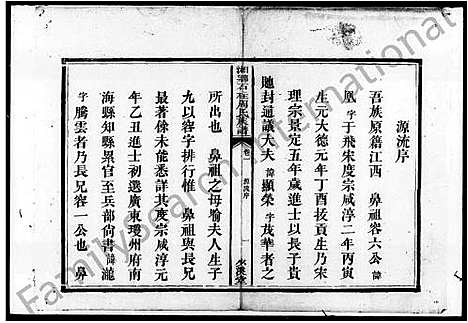 源流序
吾族原籍江西 鼻祖容六公諱
凰字于飛宋度宗咸淳二年丙寅
生元大德元年丁酉拔貢生乃宋
理宗景定五年歲進士以長子貴
貤封通議大夫諱顯榮字茂華者之
湘鄉石柱周氏族譜 卷一 源流序
所出也 鼻祖之母喻夫人生子
九以容字排行惟 鼻祖與長兄
最著徐未能悉詳其度宗咸淳元
年乙丑進士初選廣東瓊州府南
海縣知縣累官至兵部尚書諱瀧
字騰雲者乃長兄容一公也 鼻
FamilySearch International